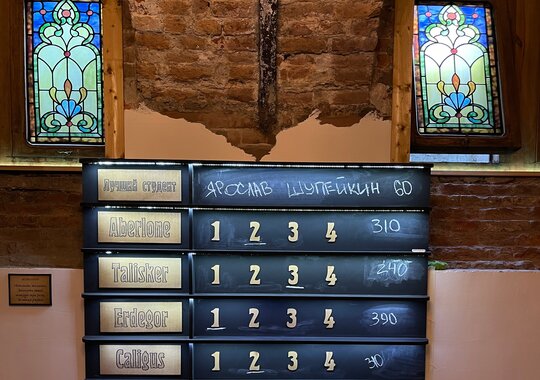 Лучший студент ЯРОСЛАВ ШУПЕЙКИН 60
Aberlone 1 2 3 4 310
Talisker 1 2 3 4 240
Erdegor 1 2 3 4 390
Caligus 1 2 3 4 310